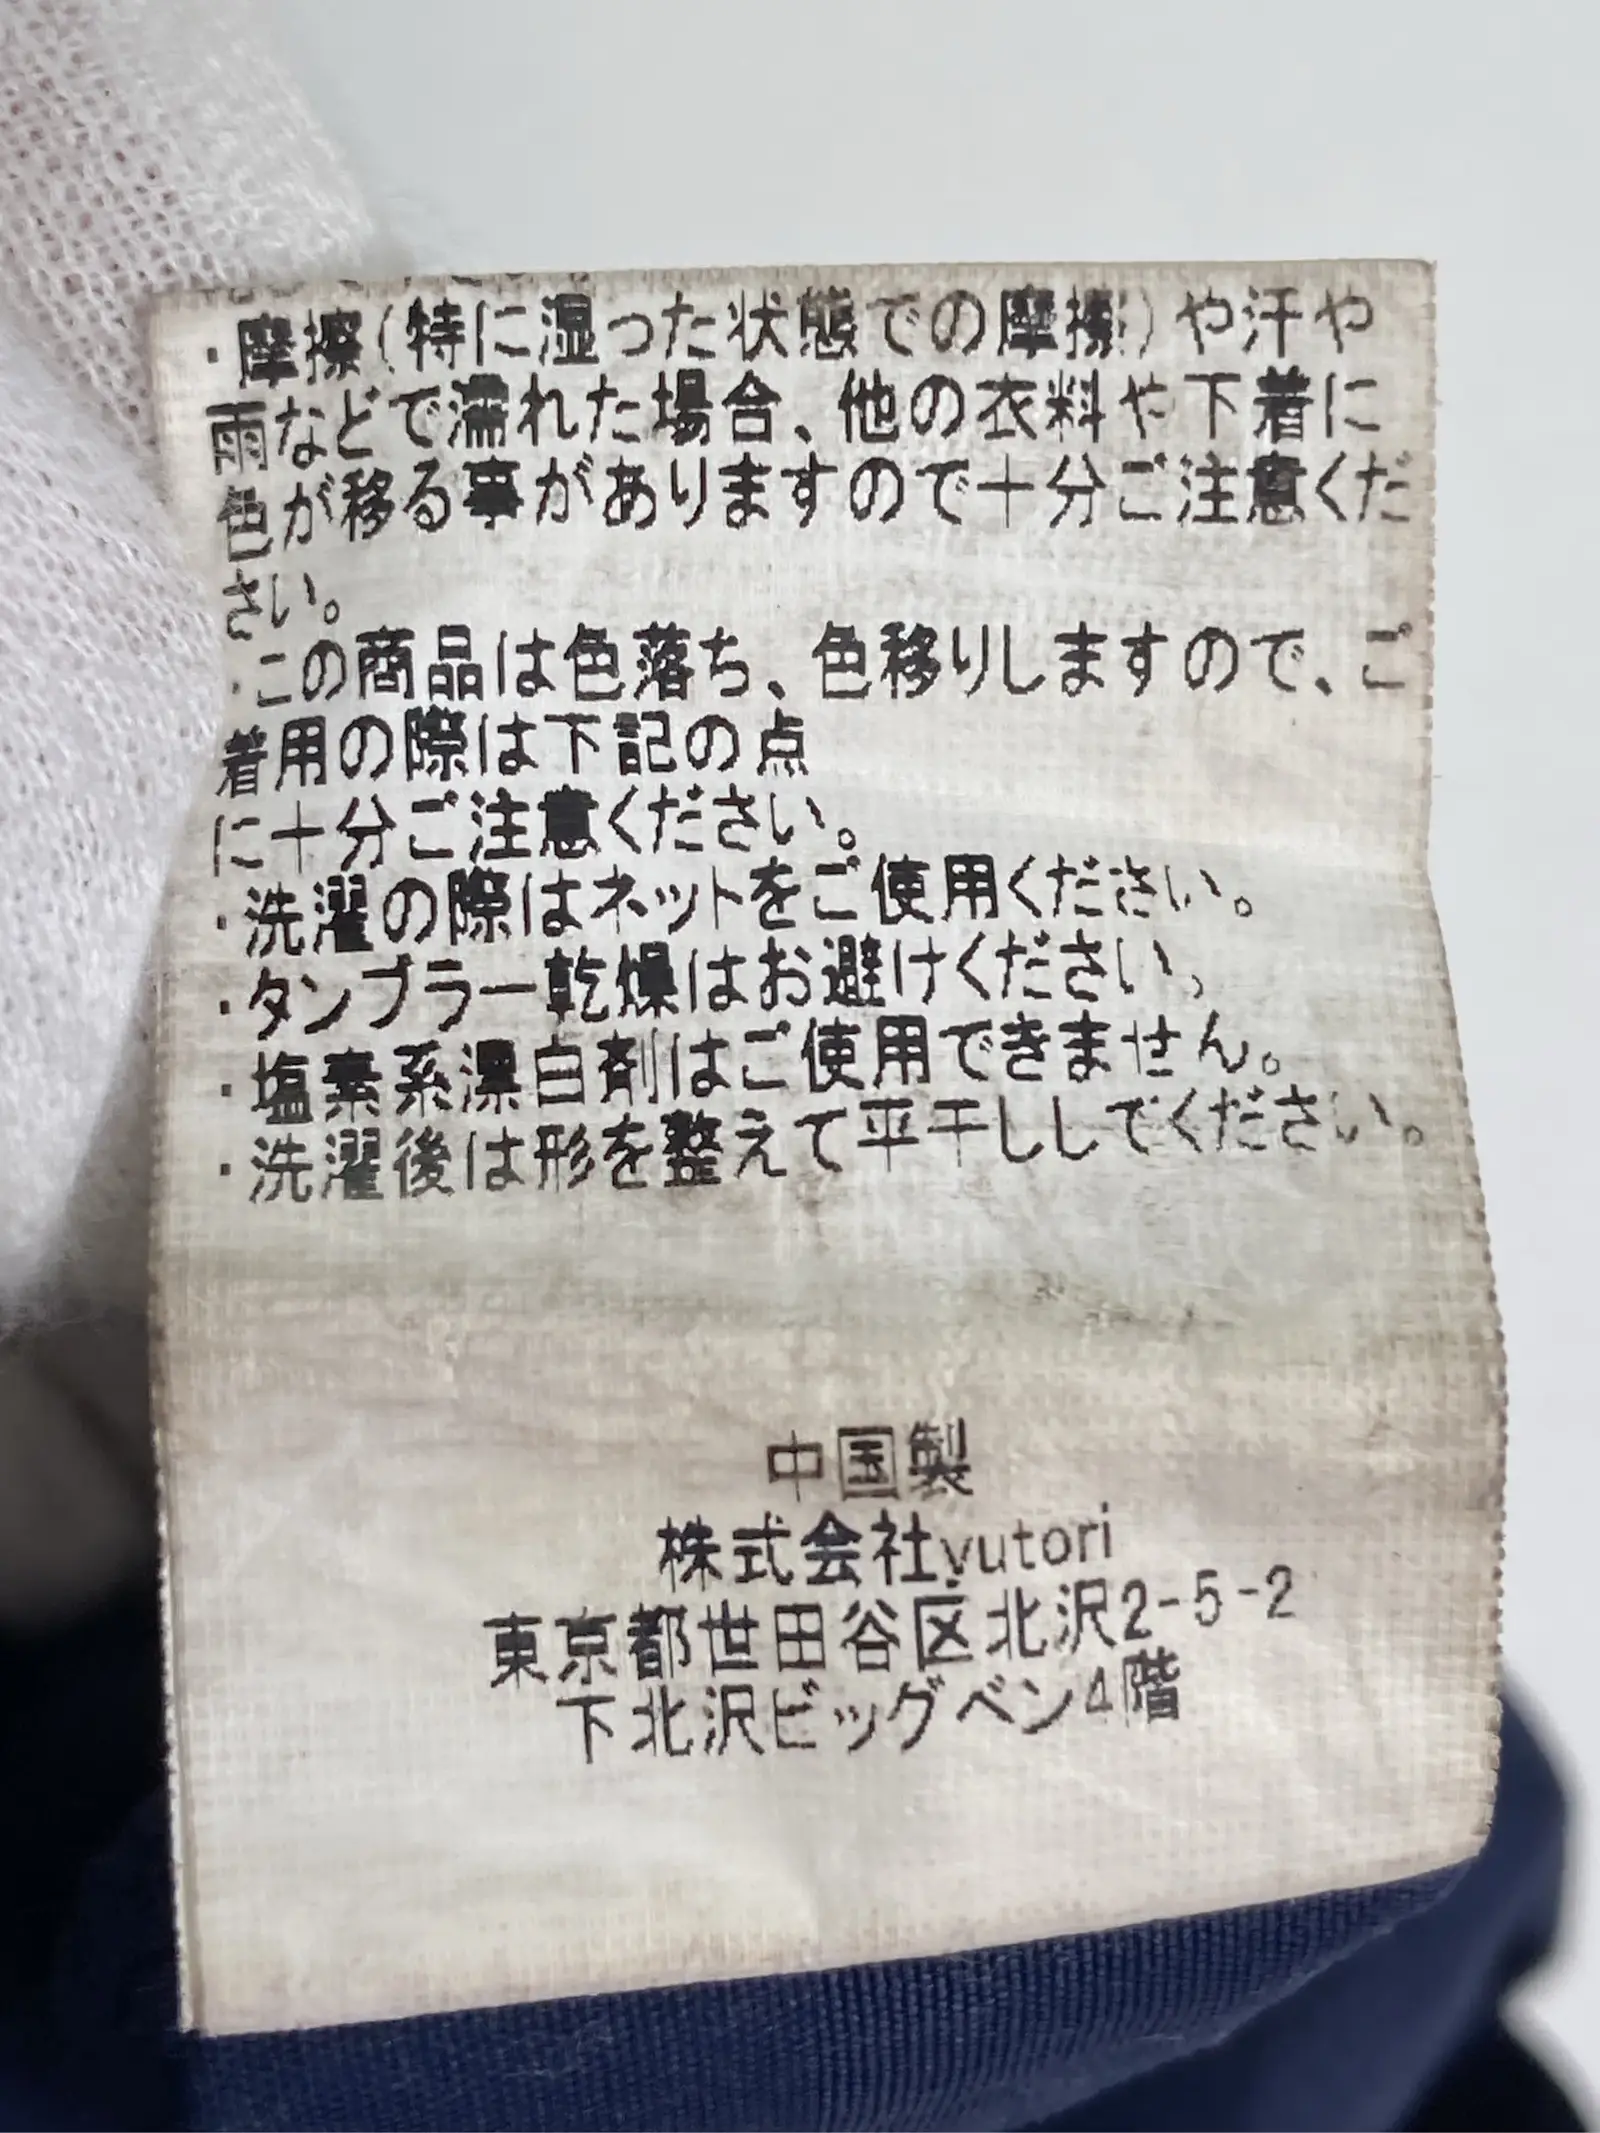 ・摩擦(特に湿った状態での摩擦)や汗や
雨などで濡れた場合、他の衣料や下着に
色が移る事がありますので十分ご注意くだ
さい。
・この商品は色落ち、色移りしますので、ご
着用の際は下記の点
に十分ご注意ください。
・洗濯の際はネットをご使用ください。
・タンブラー乾燥はお避けください。
・塩素系漂白剤はご使用できません。
・洗濯後は形を整えて平干ししてください。
中国製
株式会社yutori
東京都世田谷区北沢2-5-2
下北沢ビッグベン4階